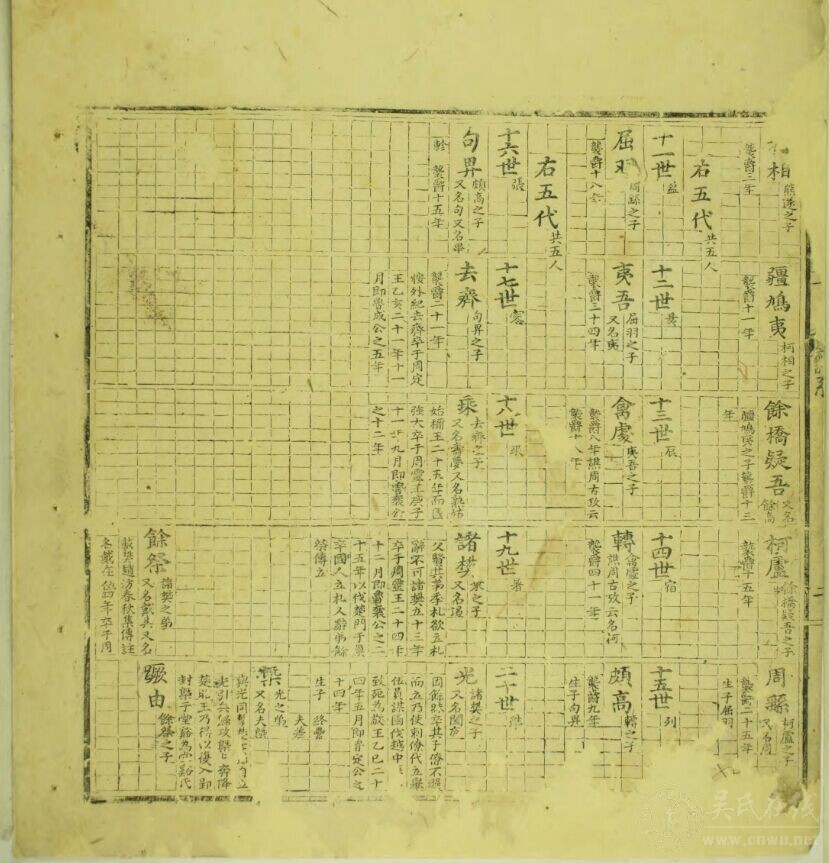 相
熊遂之子
襲爵三年
疆鳩夷
柯相之子
襲爵十一年
餘橋疑吾
又名
餘高
疆鳩夷之子襲爵十三
年
柯盧
餘橋疑吾之子
襲爵十五年
周繇
柯盧之子
又名周
襲爵二十五年
生子屈羽
右五代
共五人
十一世
屈羽
周繇之子
襲爵十八年
十二世
夷吾
屈羽之子
又名夷
襲爵三十四年
十三世
辰
禽處
夷吾之子
襲爵八年譙周古攷云
襲爵十八年
十四世
宿
轉
禽處之子
譙周古攷云名柯
襲爵四十一年
十五世
列
頗高
轉之子
襲爵九年
生子句畀
右五代
共五人
十六世
張
句畀
頗高之子
又名句又名畢
軫
襲爵十五年
十七世
去齊
句畀之子
襲爵二十一年
按外紀去齊卒于周定
王乙亥二十一年十一
月即魯成公之五年
十八世
乘
去齊之子
又名壽夢又名孰姑
始稱王二十五年而國
強大卒于周靈王庚子
十一年九月即魯襄公
之十二年
十九世
諸樊
乘之子
又名遏
父賢其第季札欲立札
辭不可諸樊立十三年
卒于周靈王二十四年
十二月即魯襄公之二
十五年以伐楚門于巢
卒國人立札札辭弟餘
祭傳立
二十世
光
諸樊之子
又名闔廬
因餘昧卒其子僚不讓
而立乃使刺僚代立舉
伍員謀國伐越中
致死為敬王乙巳二十
四年五月即魯定公之
十四年
生子
終纍
夫差
餘祭
諸樊之弟
又名戴吳又名
裁吳趙汸春秋集傳註
卒于周
槩
光之弟
又名夫槩
楚昭王乃得以復入郢
封槩于堂谿為堂谿氏
蹶由
餘祭之子
吳氏在线
www.cnwu.net